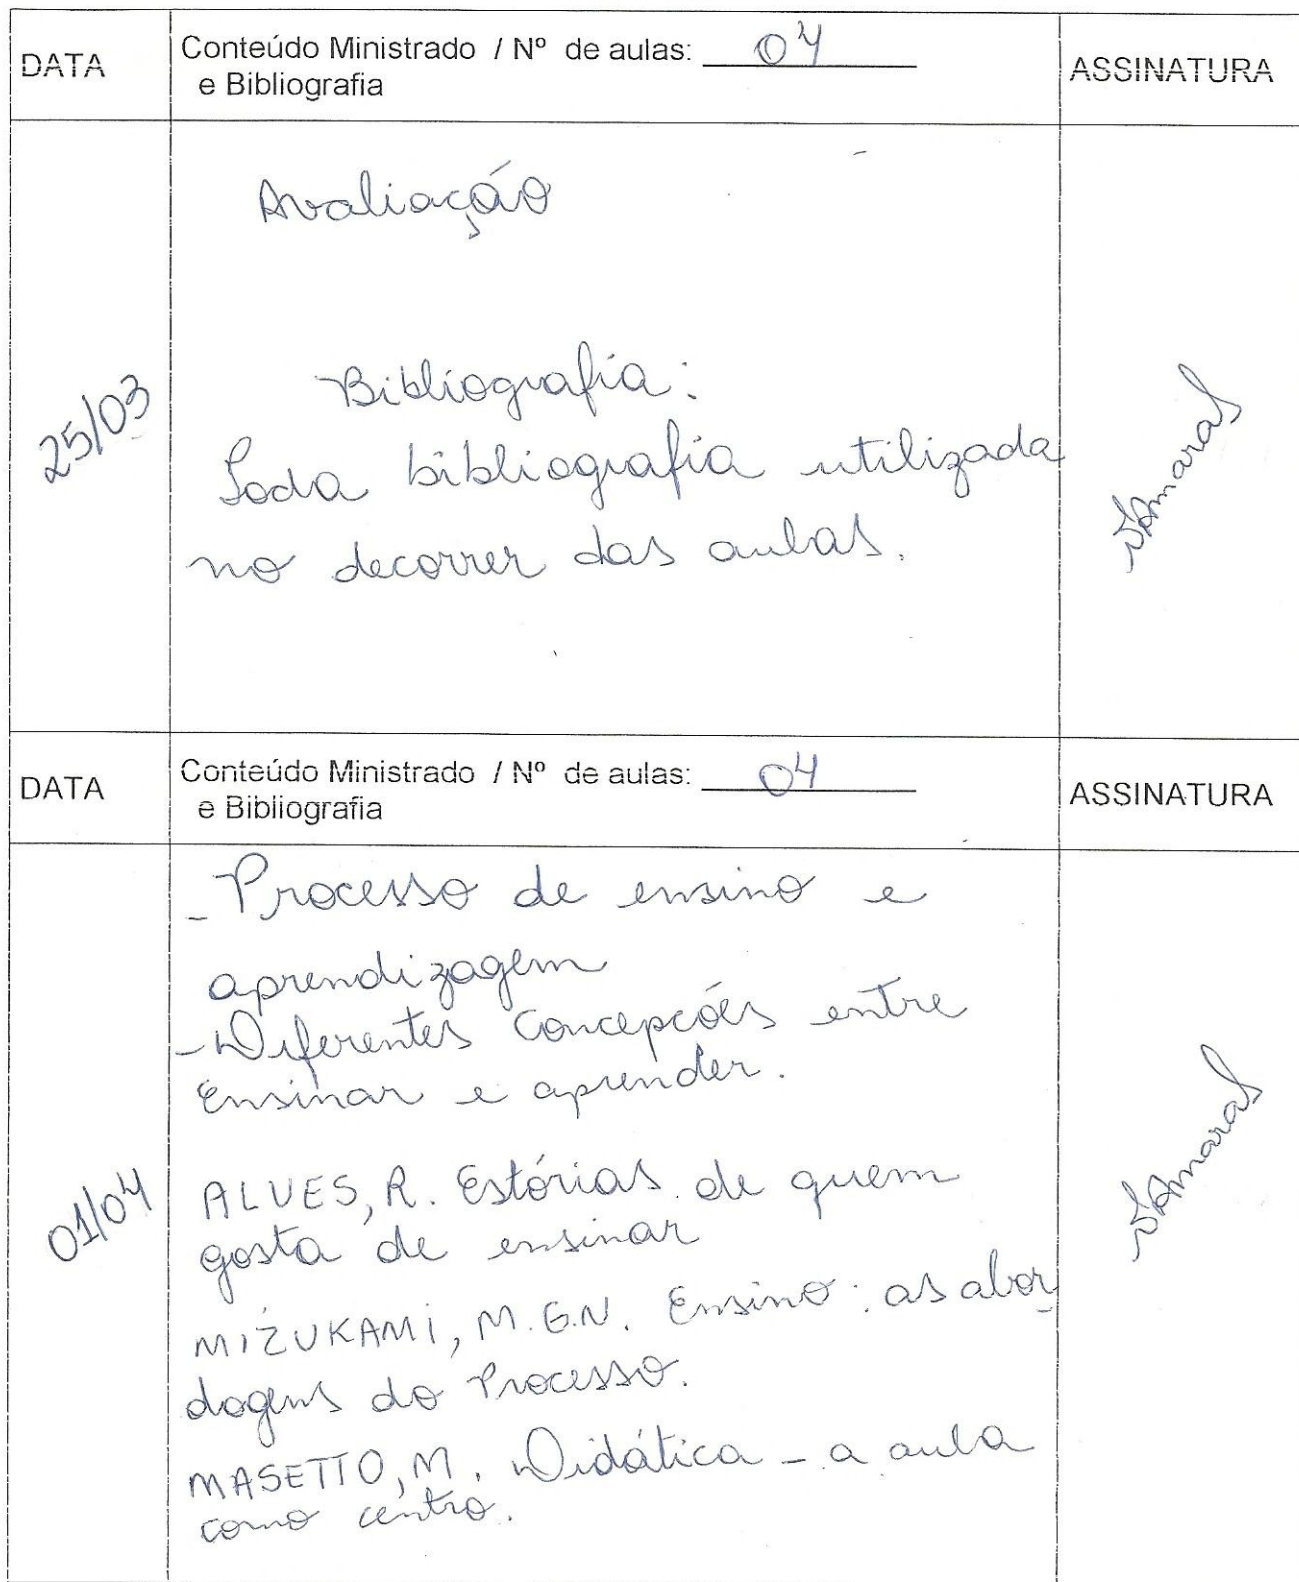 DATA
Conteúdo Ministrado / Nº de aulas: 04
e Bibliografia
ASSINATURA
Avaliação
25/03
Bibliografia:
Toda bibliografia utilizada
no decorrer das aulas.
Amaral
DATA
Conteúdo Ministrado / Nº de aulas: 04
e Bibliografia
ASSINATURA
- Processo de ensino e
aprendizagem
- Diferentes Concepções entre
Ensinar e aprender.
01/04
ALVES, R. Estórias de quem
gosta de ensinar
MIZUKAMI, M.G.N. Ensino: as abor
dagens do Processo.
MASETTO, M. Didática - a aula
como centro.
Amaral